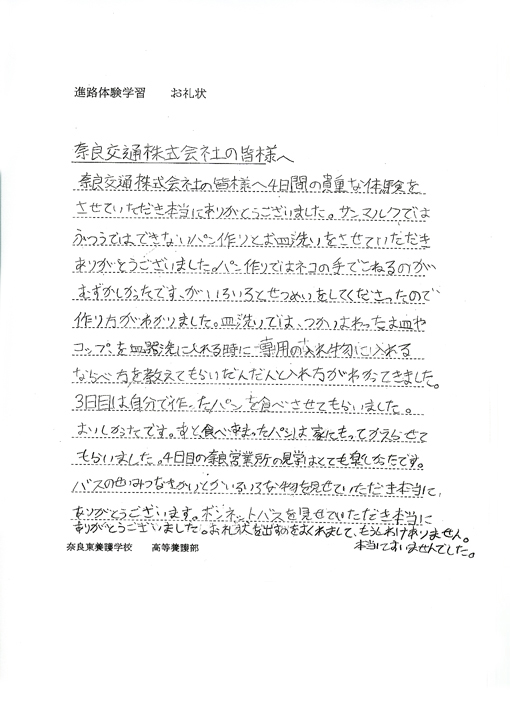 進路体験学習　　お礼状
奈良交通株式会社の皆様へ
奈良交通株式会社の皆様へ4日間の貴重な体験を
させていただき本当にありがとうございました。サンマルクでは
ふつうではできないパン作りとお皿洗いをさせていただき
ありがとうございました。パン作りではネコの手でこねるのが
むずかしかったです、がいろいろとせつめいをしてくださったので
作り方がわかりました。皿洗いでは、つかいおわったお皿や
コップを皿器洗に入れる時に専用の入れ物に入れる
ならべ方を教えてもらいだんだんと入れ方がわかってきました。
3日目は自分で作ったパンを食べさせてもらいました。
おいしかったです。あと食べあまったパンは家にもってかえらせて
もらいました。4日目の奈良営業所の見学はとても楽しかったです。
バスの
いろいろな物を見せていただき本当に
ありがとうございます。ボンネットバスを見せていただき本当に
ありがとうございました。お礼状を出すのをおくれまして、もうしわけありません。
本当にすいませんでした。
奈良東養護学校　　高等養護部